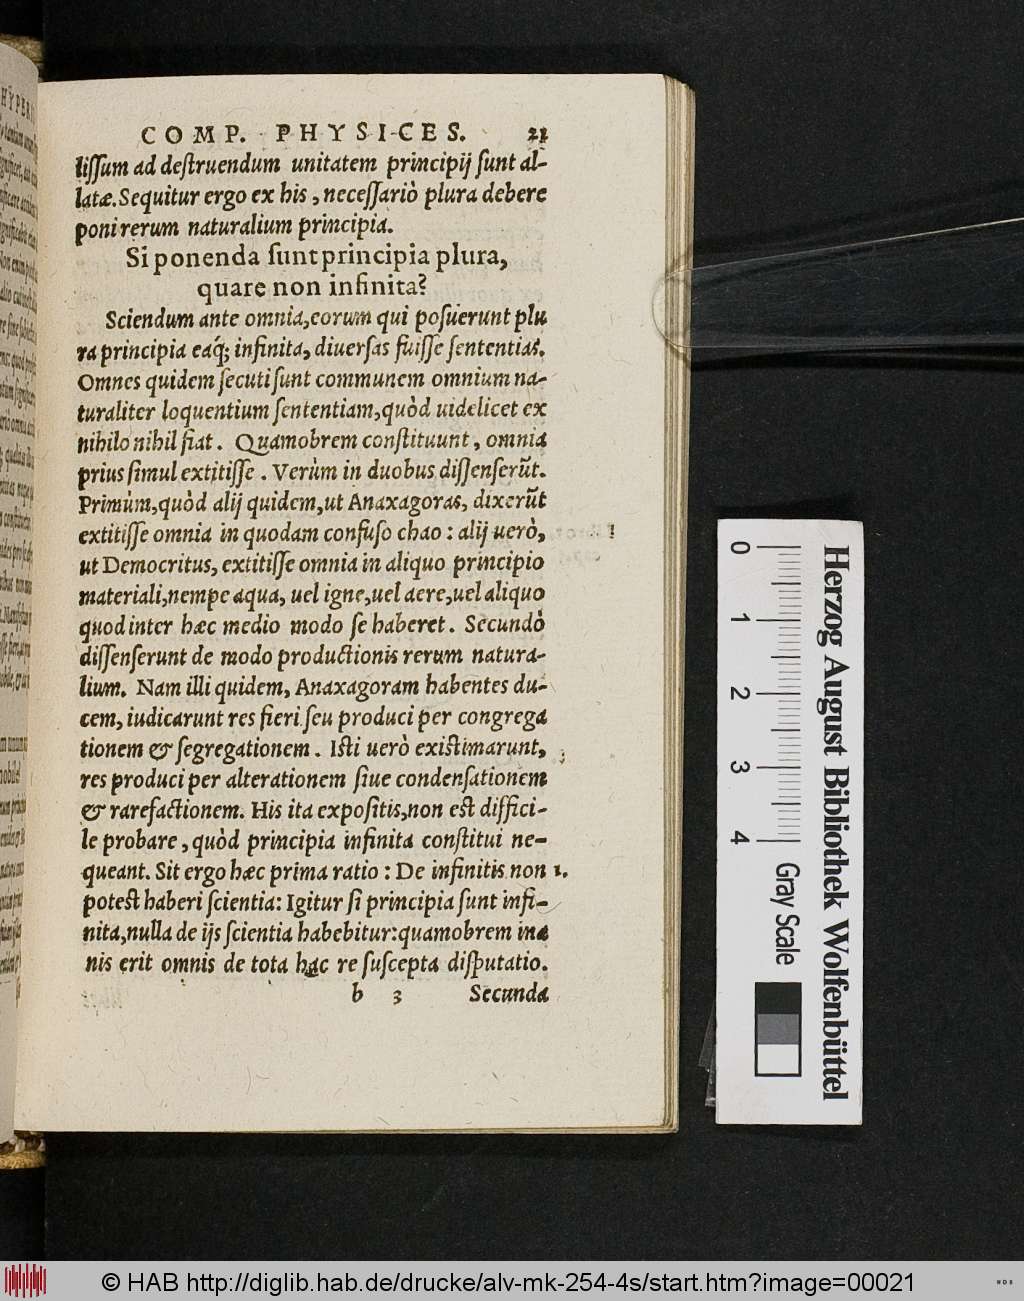 COMP. PHYSICES. 21
lissum ad destruendum unitatem principij sunt al-
latæ. Sequitur ergo ex his, necessariò plura debere
poni rerum naturalium principia.
Si ponenda sunt principia plura,
quare non infinita?
Sciendum ante omnia, eorum qui posuerunt plu
ra principia eaq́; infinita, diuersas fuisse sententias.
Omnes quidem secuti sunt communem omnium na-
turaliter loquentium sententiam, quòd uidelicet ex
nihilo nihil fiat. Quamobrem constituunt, omnia
prius simul extitisse. Verùm in duobus dissenserũt.
Primùm, quòd alij quidem, ut Anaxagoras, dixerũt
extitisse omnia in quodam confuso chao: alij uerò,
ut Democritus, extitisse omnia in aliquo principio
materiali, nempe aqua, uel igne, uel aere, uel aliquo
quod inter hæc medio modo se haberet. Secundò
dissenserunt de modo productionis rerum natura-
lium. Nam illi quidem, Anaxagoram habentes du-
cem, iudicarunt res fieri seu produci per congrega
tionem & segregationem. Isti uerò existimarunt,
res produci per alterationem siue condensationem
& rarefactionem. His ita expositis, non est diffici-
le probare, quòd principia infinita constitui ne-
queant. Sit ergo hæc prima ratio: De infinitis non 1.
potest haberi scientia: Igitur si principia sunt infi-
nita, nulla de ijs scientia habebitur: quamobrem ina
nis erit omnis de tota hac re suscepta disputatio.
b 3 Secunda
0 1 2 3 4
Gray Scale
Herzog August Bibliothek Wolfenbüttel
© HAB http://diglib.hab.de/drucke/alv-mk-254-4s/start.htm?image=00021